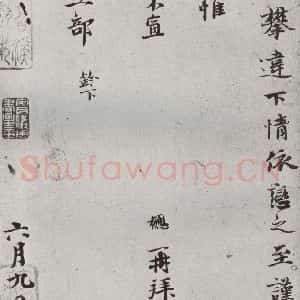 攀違下情依戀之至謹
惟
宣
摠 再拜
部 鈴下
六月九日
Shufawang.CN